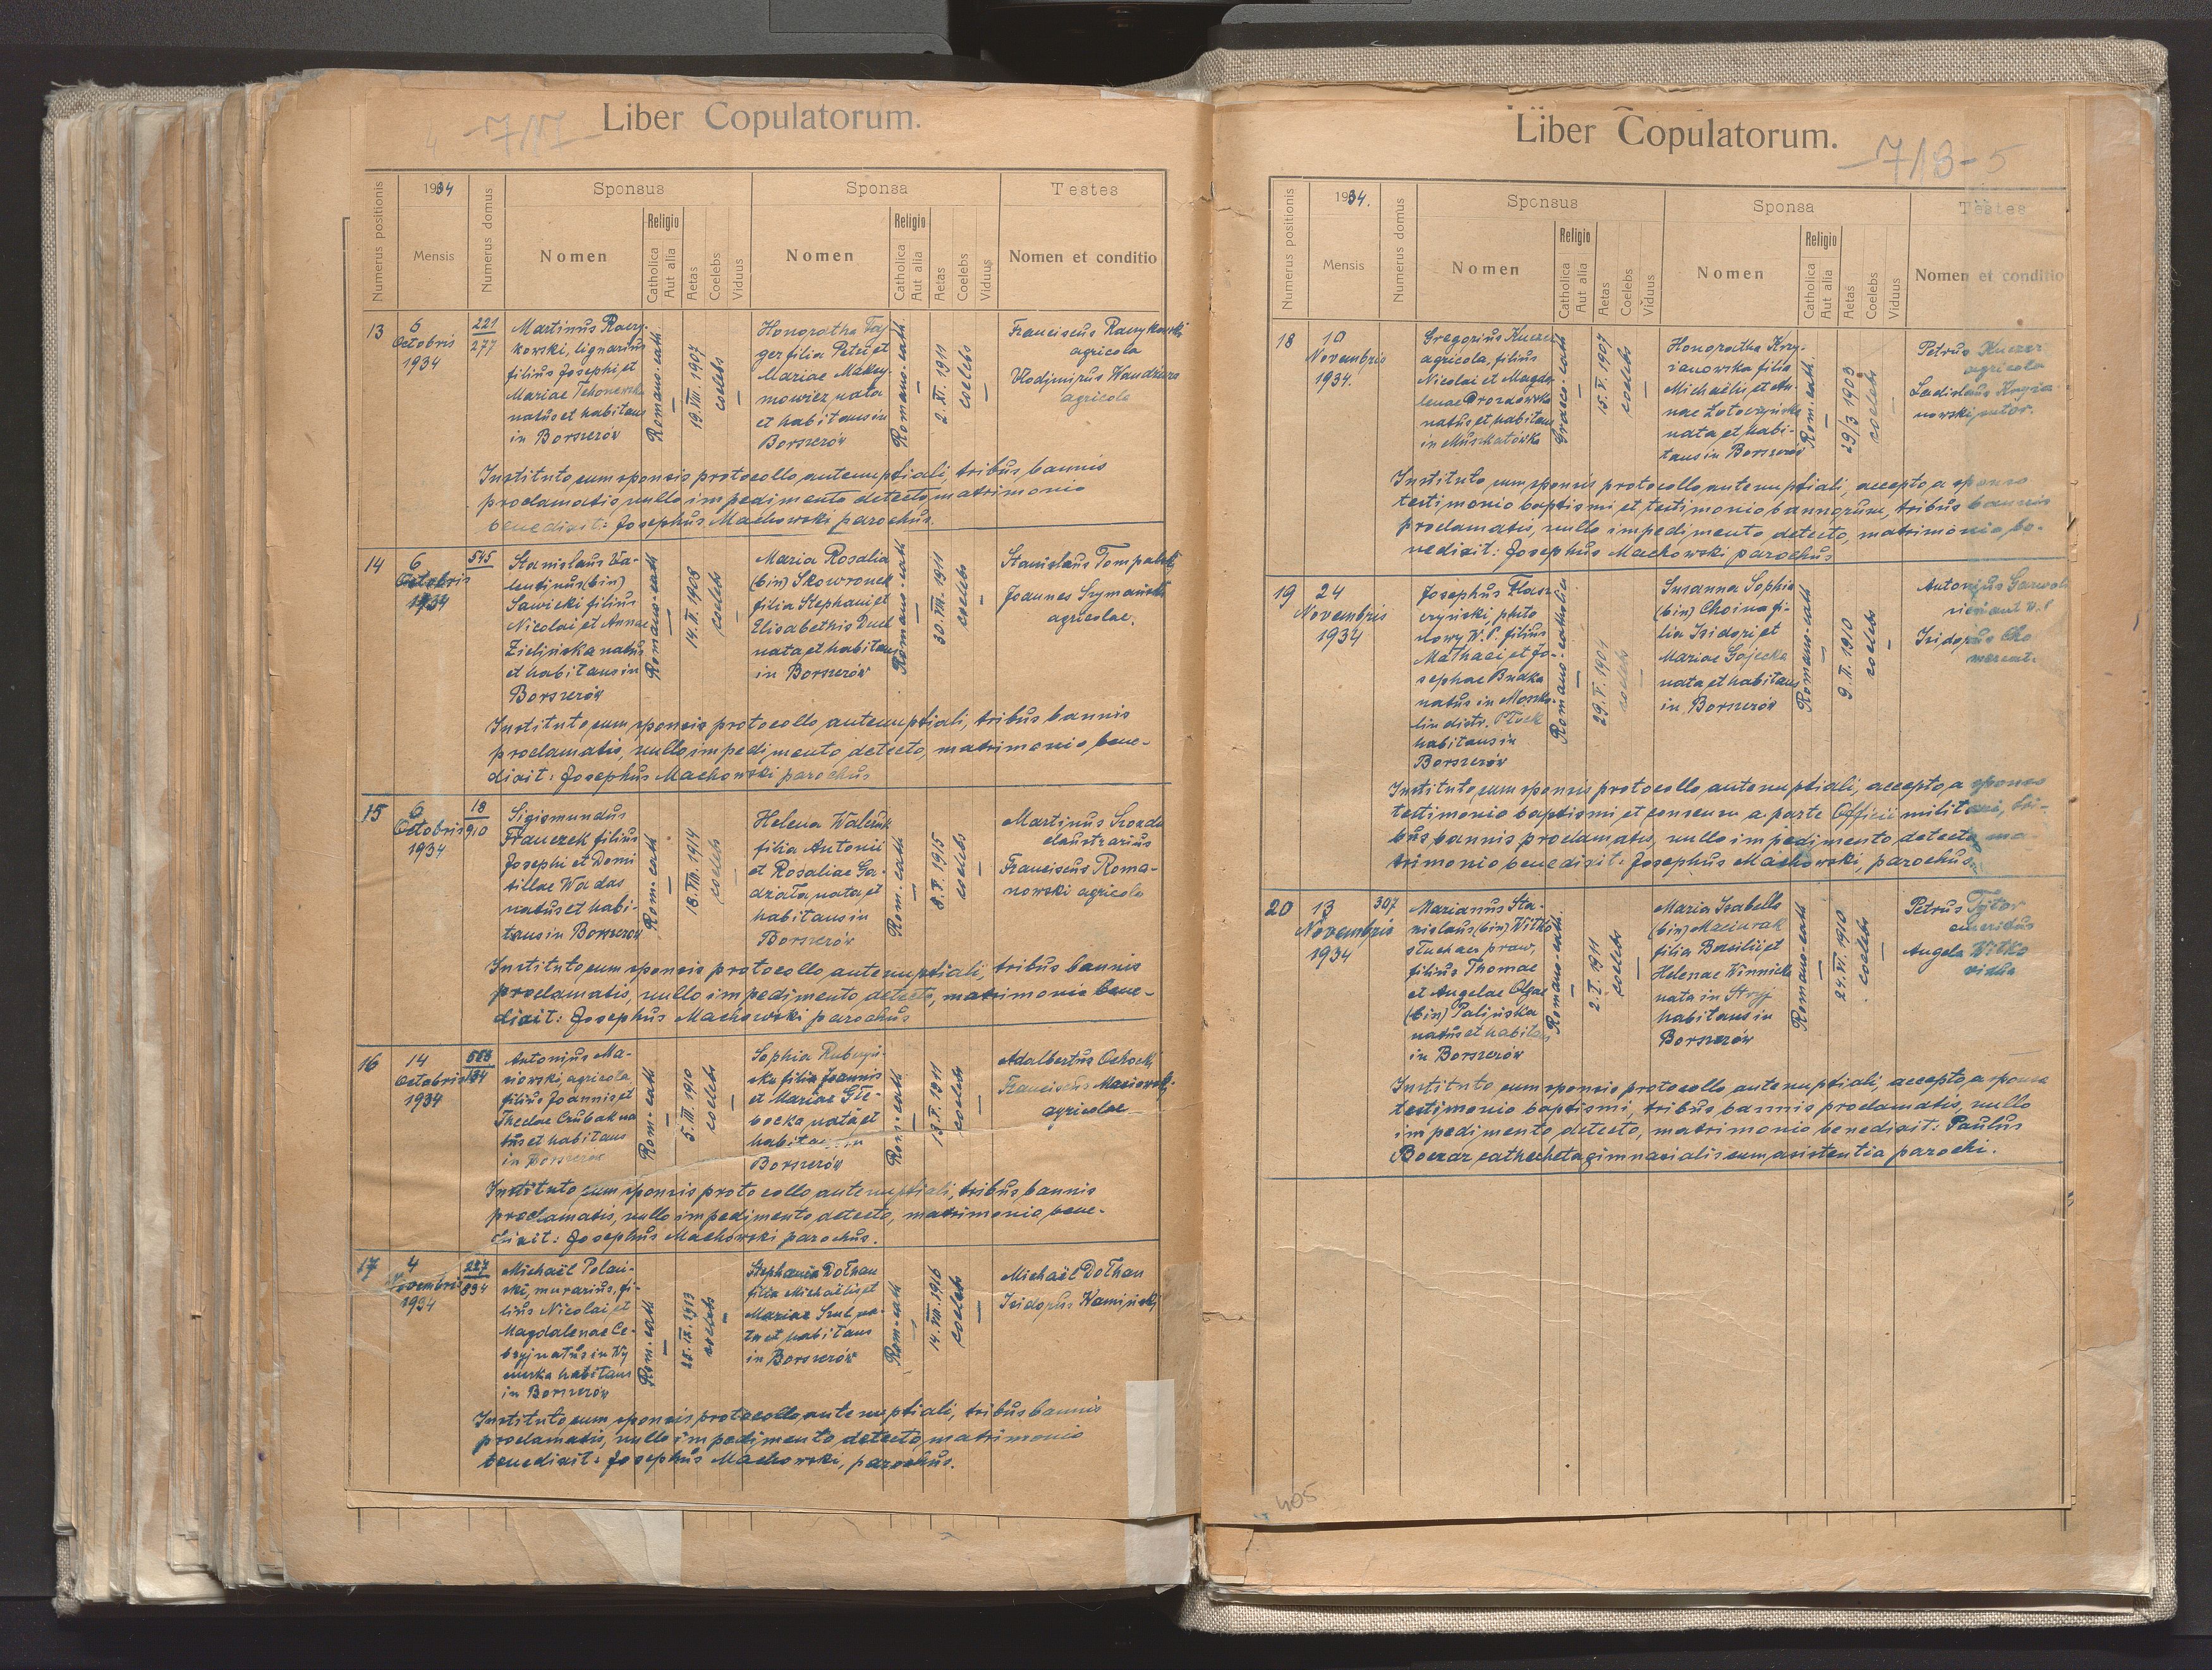 Liber Copulatorum.
Numerus positionis
1934
Mensis
Numerus domus
Sponsus
Nomen
Religio
Catholica
Aut alia
Aetas
Coelebs
Viduus
Sponsa
Nomen
Religio
Catholica
Aut alia
Aetas
Coelebs
Viduus
Testes
Nomen et conditio
13
6
Octobris
1934
221
277
Martinus Raczy-
kowski, lignarius
filius Josephi et
Mariae
natus et habitans
in Borszczów
Romano-cath
—
19.VIII.1907
coelebs
—
Honoratha
ger filia Petri et
Mariae Maksy-
mowicz, nata
et habitans in
Borszczów
Romano-cath
—
2.XI.1911
coelebs
—
Franciscus Raczykowski
agricola
Wlodjmirus
agricola
Instituto cum sponsis protocollo antenuptiali, tribus bannis
proclamatis, nullo impedimento detecto, matrimonio
benedixit: Josephus Machowski parochus.
14
6
Octobris
1934
545
Stanislaus Va-
lentinus (bin)
Sawicki filius
Nicolai et Annae
Zielińska natus
et habitans in
Borszczów
Romano-cath
—
14.II.1908
coelebs
—
Maria Rosalia
(bin) Skowronek
filia Stephani et
Elisabethis Dud
nata et habitans
in Borszczów
Romano-cath
—
30.VIII.1911
coelebs
—
Stanislaus Tompalski
Joannes Szymański
agricolae.
Instituto cum sponsis protocollo antenuptiali, tribus bannis
proclamatis, nullo impedimento, detecto, matrimonio bene-
dixit: Josephus Machowski parochus
15
6
Octobris
1934
18
910
Sigismundus
Franczek filius
Josephi et Domi
tillae Wadas
natus et habi-
tans in Borszczów
Rom-cath
—
18.VIII.1914
coelebs
—
Helena Walczuk
filia Antonii
et Rosaliae Ga-
dzała, nata et
habitans in
Borszczów
Rom-cath
—
8.V.1915
coelebs
—
Martinus Szozda
claustrarius
Franciscus Roma-
nowski agricola
Instituto cum sponsis protocollo, antenuptiali, tribus bannis
proclamatis, nullo impedimento detecto, matrimonio bene-
dixit: Josephus Machowski parochus
16
14
Octobris
1934
134
Antonius Ma-
siowski, agricola
filius Joannis et
Theclae Czubak na
tus et habitans
in Borszczów
Rom-cath
—
5.III.1910
coelebs
—
Sophia
ska filia Joannis
et Mariae Głę-
bocka nata et
habitans in
Borszczów
Rom-cath
—
13.V.1911
coelebs
—
Adalbertus Ochocki
Franciscus Masiowski
agricolae
Instituto cum sponsis protocollo antenuptiali, tribus bannis
proclamatis, nullo impedimento, detecto, matrimonio bene-
dixit: Josephus Machowski parochus.
17
4
Novembris
1934
227
894
Michaël Polań-
ski, murarius, fi-
lius Nicolai et
Magdalenae Ce-
bryj natus in Wy
habitans
in Borszczów
Rom-cath
—
25.IX.1913
coelebs
—
Stephania Dołhan
filia Michaëlis et
Mariae Szul na-
ta et habitans
in Borszczów
Rom-cath
—
14.VIII.1916
coelebs
—
Michaël Dołhan
Isidorus Kamiński
Instituto cum sponsis protocollo antenuptiali, tribus bannis
proclamatis, nullo impedimento detecto, matrimonio
benedixit: Josephus Machowski, parochus.
Liber Copulatorum.
5
Numerus positionis
1934.
Mensis
Numerus domus
Sponsus
Nomen
Religio
Catholica
Aut alia
Aetas
Coelebs
Viduus
Sponsa
Nomen
Religio
Catholica
Aut alia
Aetas
Coelebs
Viduus
Testes
Nomen et conditio
18
10
Novembris
1934.
Gregorius Kuczer
agricola, filius
Nicolai et Magda-
lenae Drozdowska
natus et habitans
in Muszkatówka
Graeco-cath
—
15.V.1907
coelebs
—
Honoratha Krzy-
żanowska filia
Michaëlis et An-
nae
nata et habi-
tans in Borszczów
Rom-cath.
—
29/3 1903
coelebs
—
Petrus Kuczer
agricola
Ladislaus Krzyża-
nowski, sutor.
Instituto cum sponsis protocollo antenuptiali, accepto a sponso
testimonio baptismi et testimonio bannorum, tribus bannis
proclamatis, nullo impedimento, detecto, matrimonio be-
nedixit: Josephus Machowski parochus
19
24
Novembris
1934
Josephus
czyński, pluto
nowy W.P. filius
Mathaei et Jo-
sephae Budka
natus in
lin distr. Płock
habitans in
Borszczów
Romano-catholica
—
29.V.1901
coelebs
—
Susanna Sophia
(bin) Choina fi-
lia Isidori et
Mariae Gajecka
nata et habitans
in Borszczów
Romano-cath
—
9.II.1910
coelebs
—
Antonius
W.P
Isidorus Cho
Instituto, cum sponsis protocollo, antenuptiali, accepto, a sponso
testimonio baptismi, et consensu a parte Officii militaris, tri-
bus bannis proclamatis, nullo impedimento detecto ma-
trimonio benedixit: Josephus Machowski, parochus.
20
13
Novembris
1934
307
Marianus Sta-
nislaus (bin) Witko
słuchacz praw,
filius Thomae
et Angelae Olgae
(bin) Palińska
natus et habitans
in Borszczów
Romano-cath.
—
2.I.1911
coelebs
—
Maria Isabella
(bin) Maciurak
filia Basilii et
Helenae Winnicka
nata in Stryj
habitans in
Borszczów
Romano-cath
—
24.VI.1910
coelebs
—
Petrus
emeritus
Angela Witko
vidua
Instituto cum sponsis protocollo antenuptiali, accepto, a sponsa
testimonio baptismi, tribus bannis proclamatis, nullo
impedimento detecto, matrimonio benedixit: Paulus
Boczar cathecheta gimnasialis cum asistentia parochi.
405